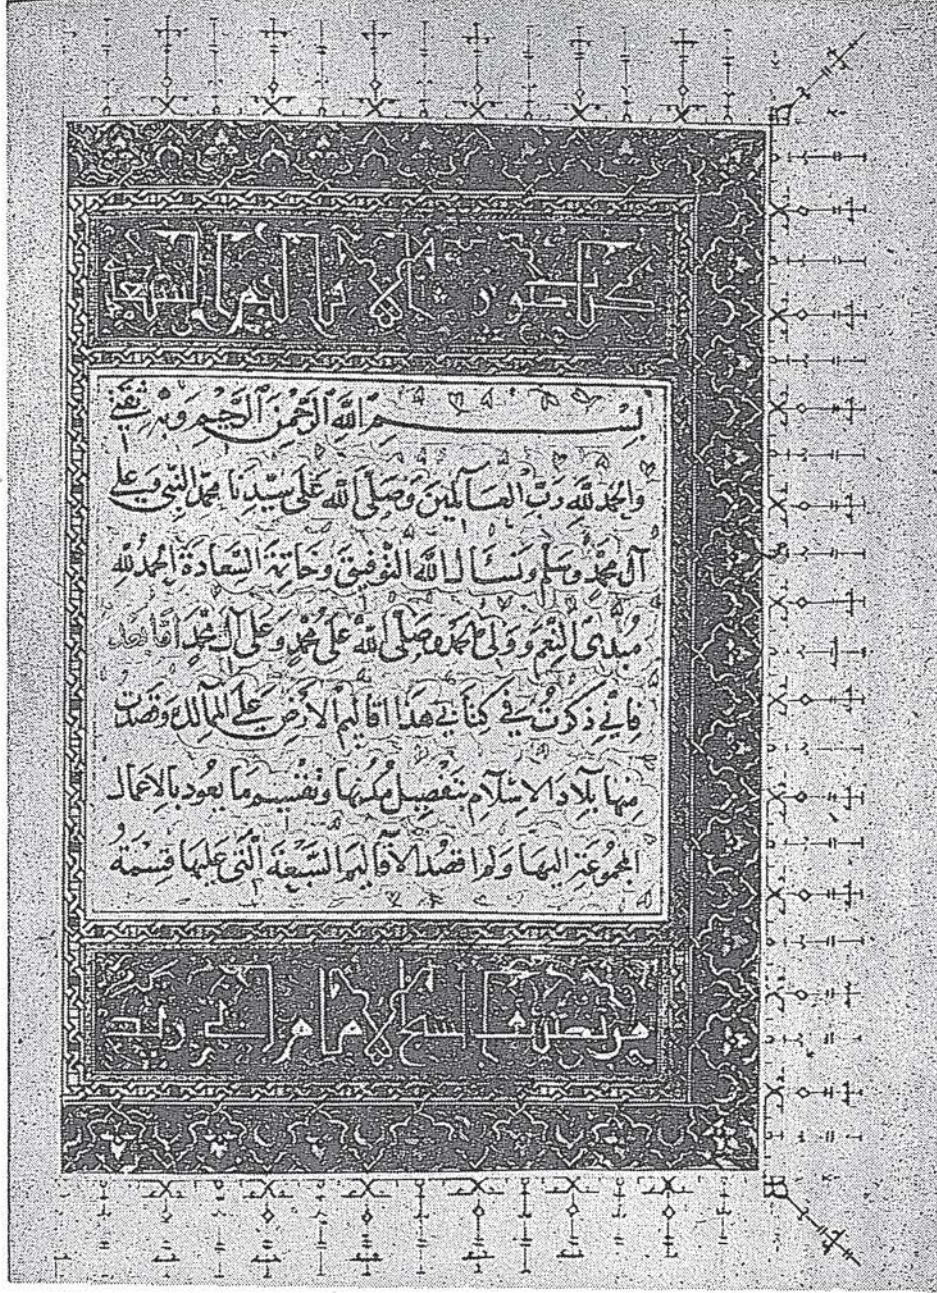 كتاب
بسم الله الرحمن الرحيم وبه ثقتي
والحمد لله رب العالمين وصلى الله على سيدنا محمد النبي وعلى
آل محمد وسلم ونسأل الله التوفيق وخاتمة السعادة الحمد لله
مبدئ النعم وولي الحمد وصلى الله على محمد وعلى آل محمد اما بعد
فاني ذكرت في كتابي هذا اقاليم الارض على الممالك وقصدت
منها بلاد الاسلام بتفصيل مدنها وتقسيم ما يعود بالاعمال
المجموعة اليها ولم اقصد الاقاليم السبعة التي عليها قسمة
من تصنيف الامام ابي زيد